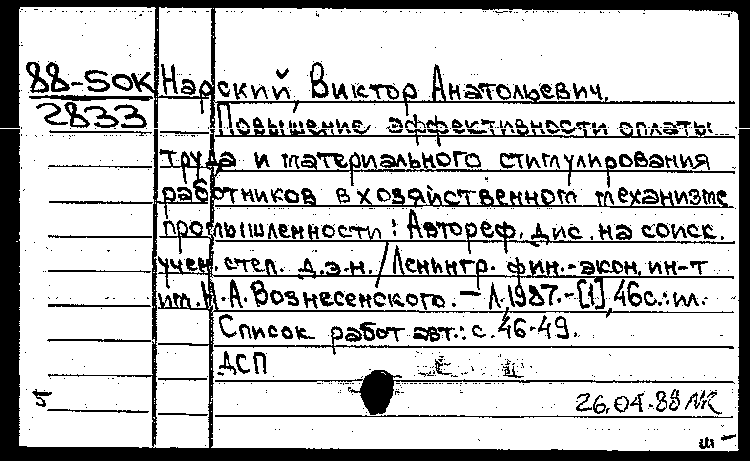 88-50к Нарский, Виктор Анатольевич.
2833 Повышение эффективности оплаты
труда и материального стимулирования
работников в хозяйственном механизме
промышленности: Автореф. дис. на соиск.
учен. степ. д.э.н. / Ленингр. фин.-экон. ин-т
им. Н.А. Вознесенского. – Л., 1987. – [1], 46с.: ил.
Список работ авт.: с. 46-49.
ДСП
5 26.04.88
ш –